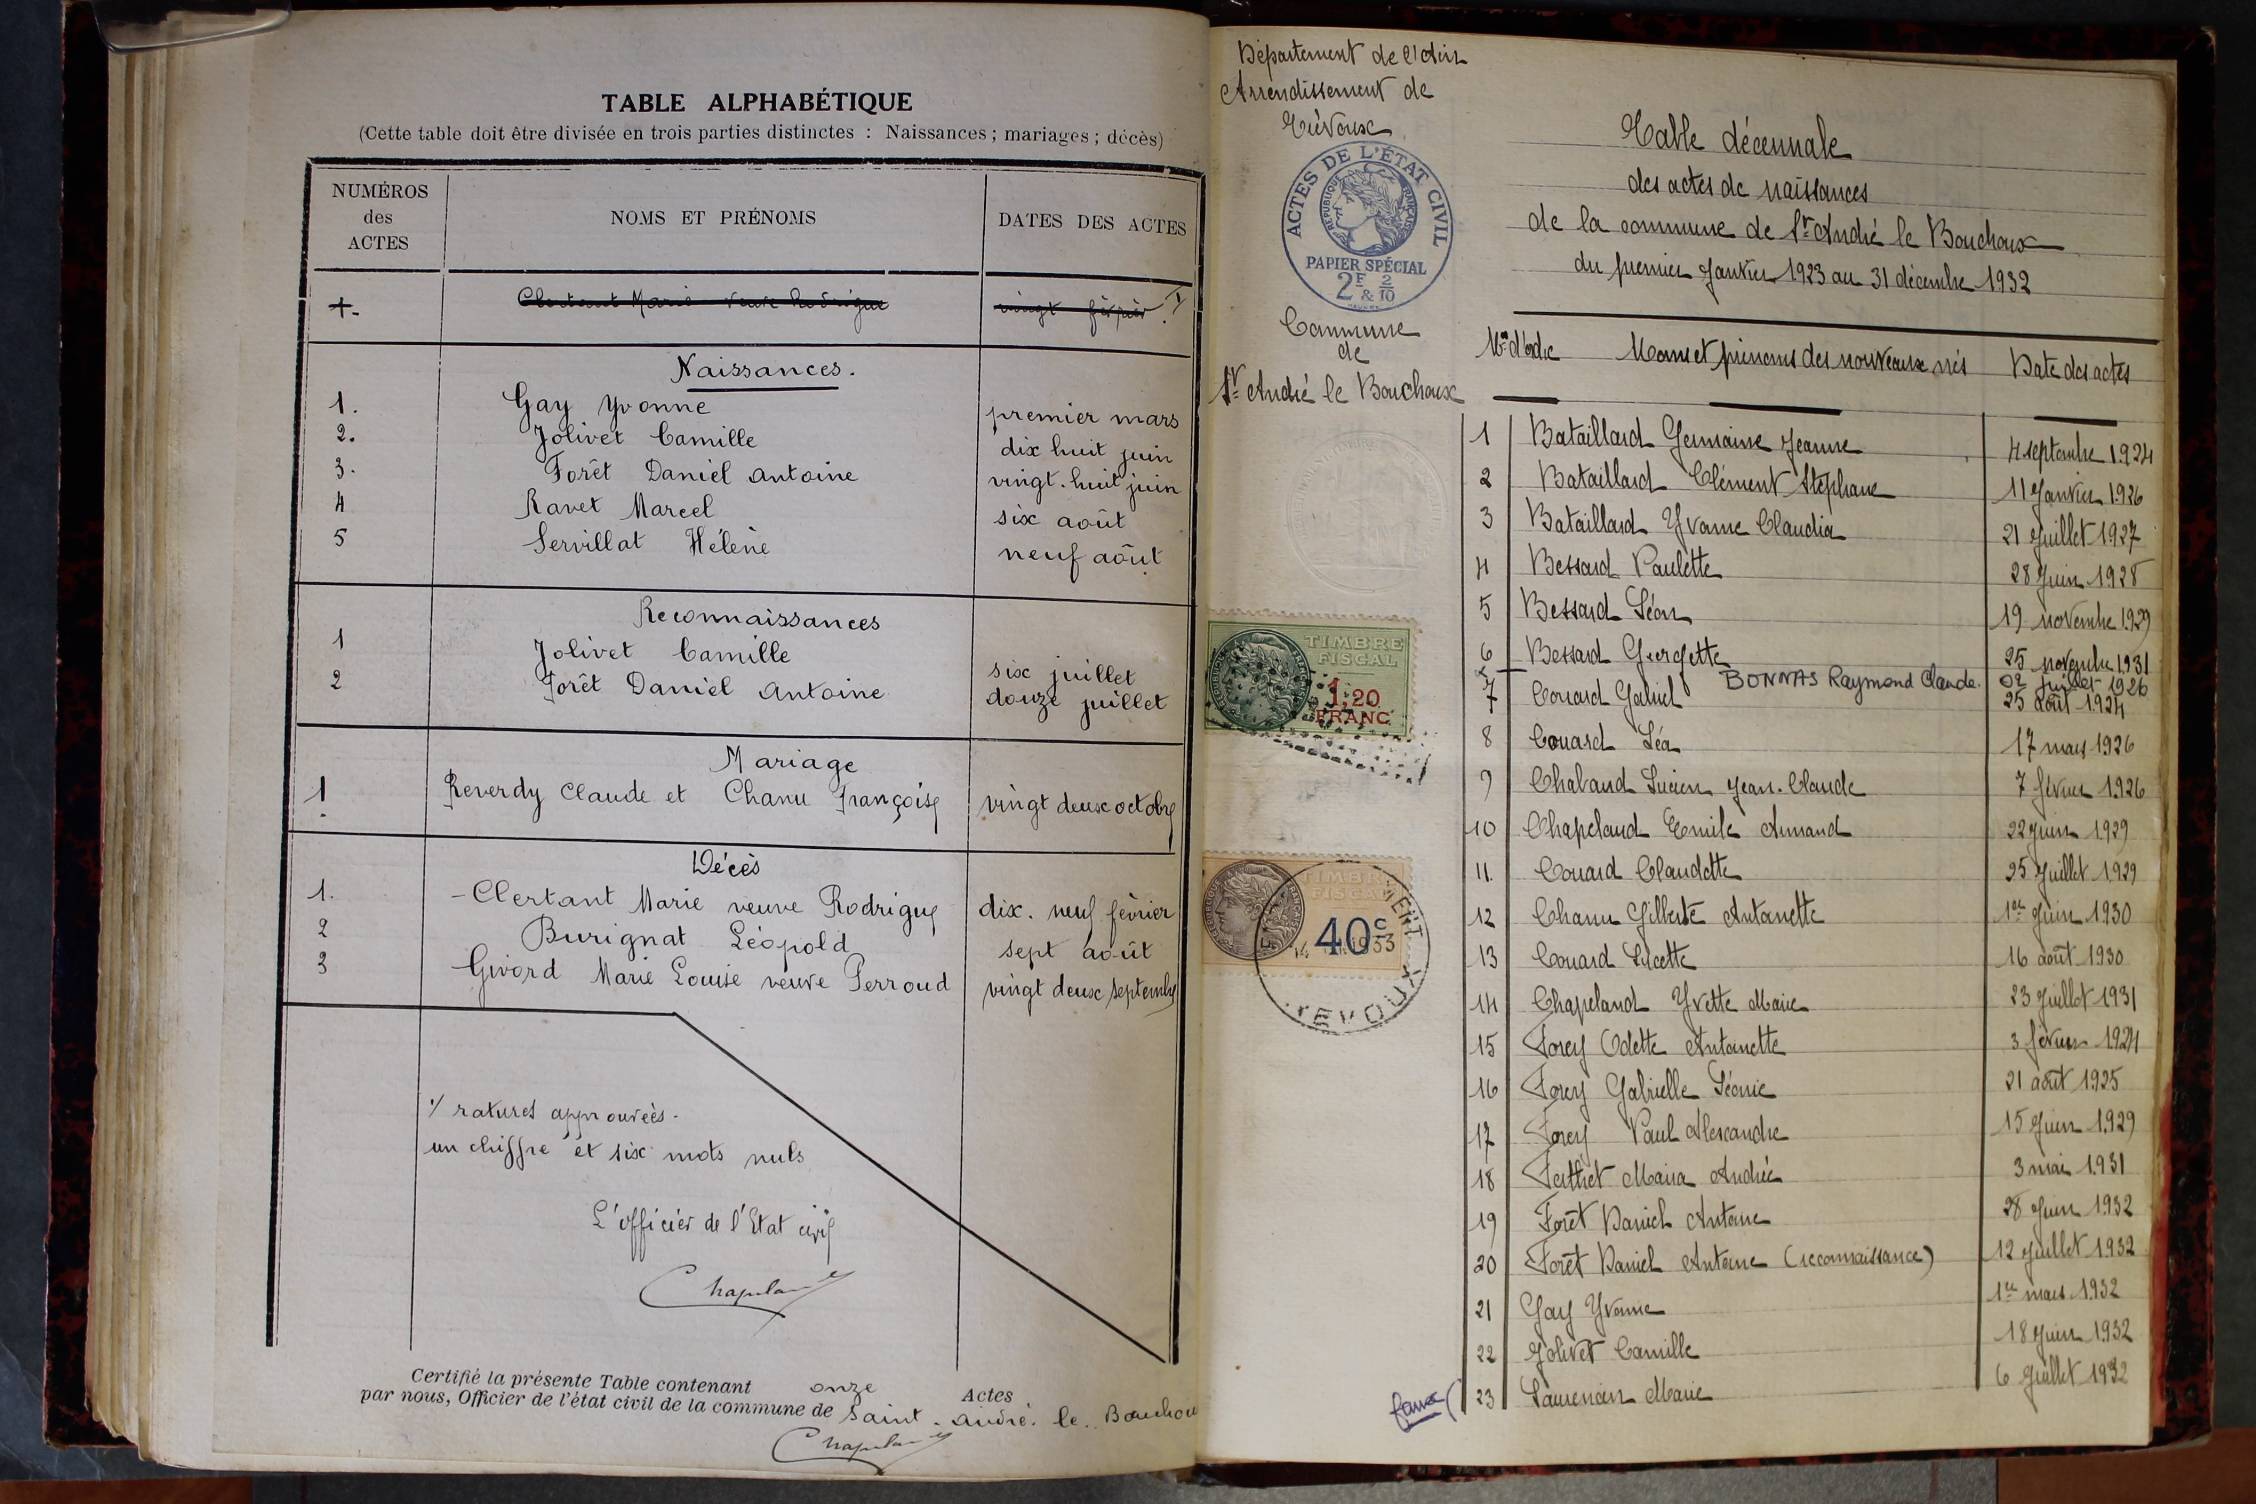 TABLE ALPHABÉTIQUE
(Cette table doit être divisée en trois parties distinctes : Naissances ; mariages ; décès)
NUMÉROS des ACTES NOMS ET PRÉNOMS DATES DES ACTES
1. Clertant Marie veuve Rodrigue vingt février
Naissances.
1. Gay Yvonne premier mars
2. Jolivet Camille dix huit juin
3. Forêt Daniel Antoine vingt-huit juin
4 Ravet Marcel six août
5 Servillat Hélène neuf août
Reconnaissances
1 Jolivet Camille six juillet
2 Forêt Daniel Antoine douze juillet
Mariage
1. Reverdy Claude et Chanu Françoise vingt deux octobre
Décès
1. Clertant Marie veuve Rodrigue dix. neuf février
2 Burignat Léopold sept août
3 Givord Marie Louise veuve Perroud vingt deux septembre
ratures approuvées.
un chiffre et six mots nuls
L'officier de l'Etat civil
Certifié la présente Table contenant onze Actes
par nous, Officier de l'état civil de la commune de Saint. André. le. Bouchou
Département de l'Ain
Arrondissement de
Trévoux
ACTES DE L'ÉTAT CIVIL
RÉPUBLIQUE FRANÇAISE
PAPIER SPÉCIAL
2F & 2/10
Commune
de
St André le Bouchoux
TIMBRE FISCAL
1,20
FRANC
TIMBRE FISCAL
40c
1933
Table décennale
des actes de naissances
de la commune de St André le Bouchoux
du premier Janvier 1923 au 31 décembre 1932
Nos d'Ordre Noms et prénoms des nouveaux nés Date des actes
1 Bataillard Germaine Jeanne 4 septembre 1924
2 Bataillard Clément Stéphane 11 Janvier 1926
3 Bataillard Yvonne Claudia 21 Juillet 1927
4 Bessard Paulette 28 Juin 1928
5 Bessard Léon 19 novembre 1929
6 Bessard Georgette 25 novembre 1931
BONNAS Raymond Claude. 02 juillet 1926
7 Couard Gabriel 25 août 1924
8 Couard Léa 17 mars 1926
9 Chabaud Lucien Jean. Claude 7 février 1926
10 Chapeland Emile Armand 22 Juin 1929
11. Couard Claudette 25 Juillet 1929
12 Chanu Gilberte Antoinette 1er Juin 1930
13 Couard Lucette 16 août 1930
14 Chapeland Yvette Marie 23 Juillet 1931
15 Forey Odette Antoinette 3 février 1924
16 Forey Gabrielle Léonie 21 août 1925
17 Forey Paul Alexandre 15 Juin 1929
18 Ferthet Maria Andrée 3 mai 1931
19 Forêt Daniel Antoine 28 Juin 1932
20 Forêt Daniel Antoine (reconnaissance) 12 Juillet 1932
21 Gay Yvonne 1er mars 1932
22 Jolivet Camille 18 Juin 1932
faux( 23 Laurencin Marie 6 Juillet 1932